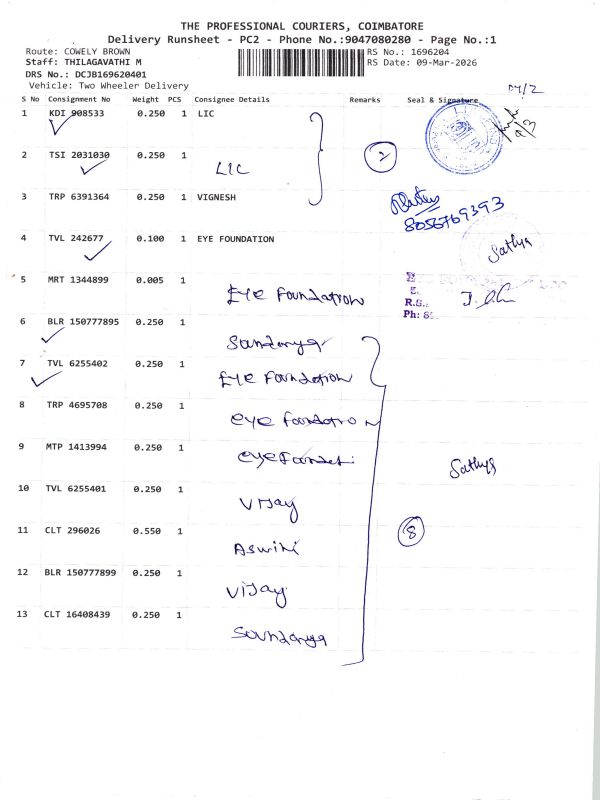 THE PROFESSIONAL COURIERS, COIMBATORE
Delivery Runsheet - PC2 - Phone No.:9047080280 - Page No.:1
Route: COWELY BROWN
RS No.: 1696204
Staff: THILAGAVATHI M
RS Date: 09-Mar-2026
DRS No.: DCJB169620401
Vehicle: Two Wheeler Delivery
S No Consignment No Weight PCS Consignee Details Remarks Seal & Signature
1 KDI 908533 0.250 1 LIC
2 TSI 2031030 0.250 1 LIC
2
3 TRP 6391364 0.250 1 VIGNESH
8056769393
4 TVL 242677 0.100 1 EYE FOUNDATION
Sathya
5 MRT 1344899 0.005 1 EYE Foundation
R.S.
Ph:
6 BLR 150777895 0.250 1 Soundarya
7 TVL 6255402 0.250 1 EYE Foundation
8 TRP 4695708 0.250 1 eye foundation
9 MTP 1413994 0.250 1 eye Foundati
Sathya
10 TVL 6255401 0.250 1 Vijay
11 CLT 296026 0.550 1 Aswini
8
12 BLR 150777899 0.250 1 Vijay
13 CLT 16408439 0.250 1 Soundarya